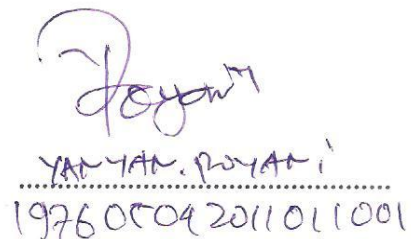 Royani
YANYAN. ROYANI
197605042011011001